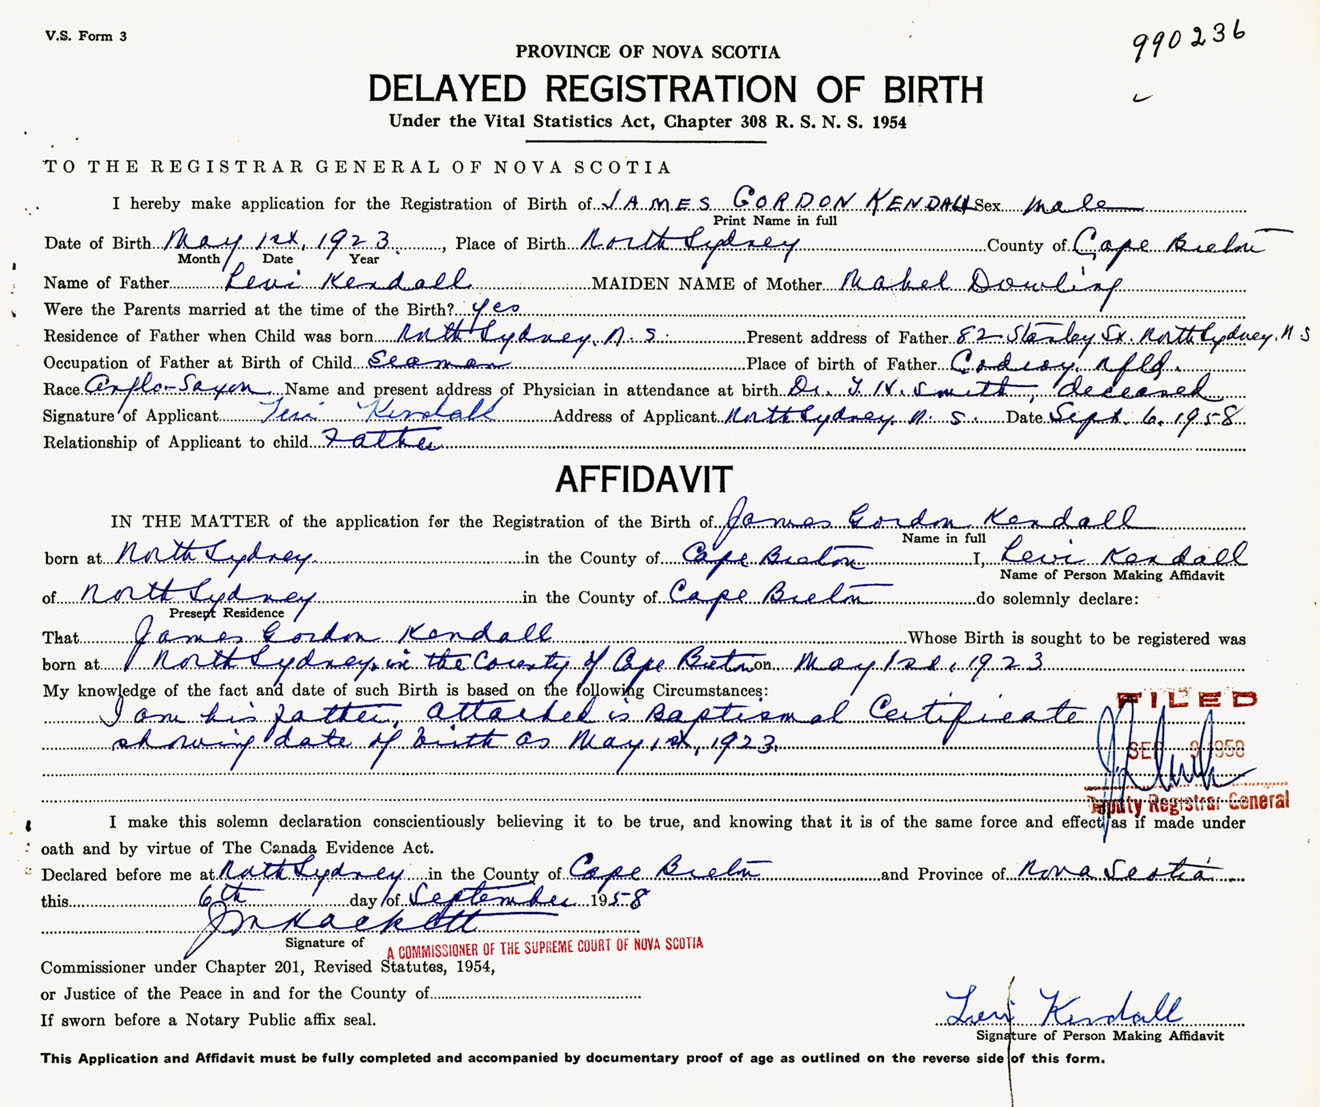 V.S. Form 3
990236
PROVINCE OF NOVA SCOTIA
DELAYED REGISTRATION OF BIRTH
Under the Vital Statistics Act, Chapter 308 R. S. N. S. 1954
TO THE REGISTRAR GENERAL OF NOVA SCOTIA
I hereby make application for the Registration of Birth of JAMES GORDON KENDALL Sex male
Print Name in full
Date of Birth May 1st, 1923, Place of Birth North Sydney County of Cape Breton
Month Date Year
Name of Father Levi Kendall MAIDEN NAME of Mother Mabel Dowling
Were the Parents married at the time of the Birth? yes
Residence of Father when Child was born North Sydney, N. S. Present address of Father 82 Stanley St. North Sydney, N S
Occupation of Father at Birth of Child Seaman Place of birth of Father Codroy, Nfld.
Race Anglo-Saxon Name and present address of Physician in attendance at birth Dr. T. H. Smith, deceased
Signature of Applicant Levi Kendall Address of Applicant North Sydney, N. S. Date Sept. 6, 1958
Relationship of Applicant to child Father
AFFIDAVIT
IN THE MATTER of the application for the Registration of the Birth of James Gordon Kendall
Name in full
born at North Sydney. in the County of Cape Breton I, Levi Kendall
Name of Person Making Affidavit
of North Sydney in the County of Cape Breton do solemnly declare:
Present Residence
That James Gordon Kendall Whose Birth is sought to be registered was
born at North Sydney, in the County of Cape Breton on May 1st, 1923
My knowledge of the fact and date of such Birth is based on the following Circumstances:
I am his father, attached is Baptismal Certificate
showing date of birth as May 1st, 1923.
FILED
SEP 9 1958
Deputy Registrar General
I make this solemn declaration conscientiously believing it to be true, and knowing that it is of the same force and effect as if made under
oath and by virtue of The Canada Evidence Act.
Declared before me at North Sydney in the County of Cape Breton and Province of Nova Scotia
this 6th day of September 1958
J M Hackett
Signature of A COMMISSIONER OF THE SUPREME COURT OF NOVA SCOTIA
Commissioner under Chapter 201, Revised Statutes, 1954,
or Justice of the Peace in and for the County of
If sworn before a Notary Public affix seal.
Levi Kendall
Signature of Person Making Affidavit
This Application and Affidavit must be fully completed and accompanied by documentary proof of age as outlined on the reverse side of this form.